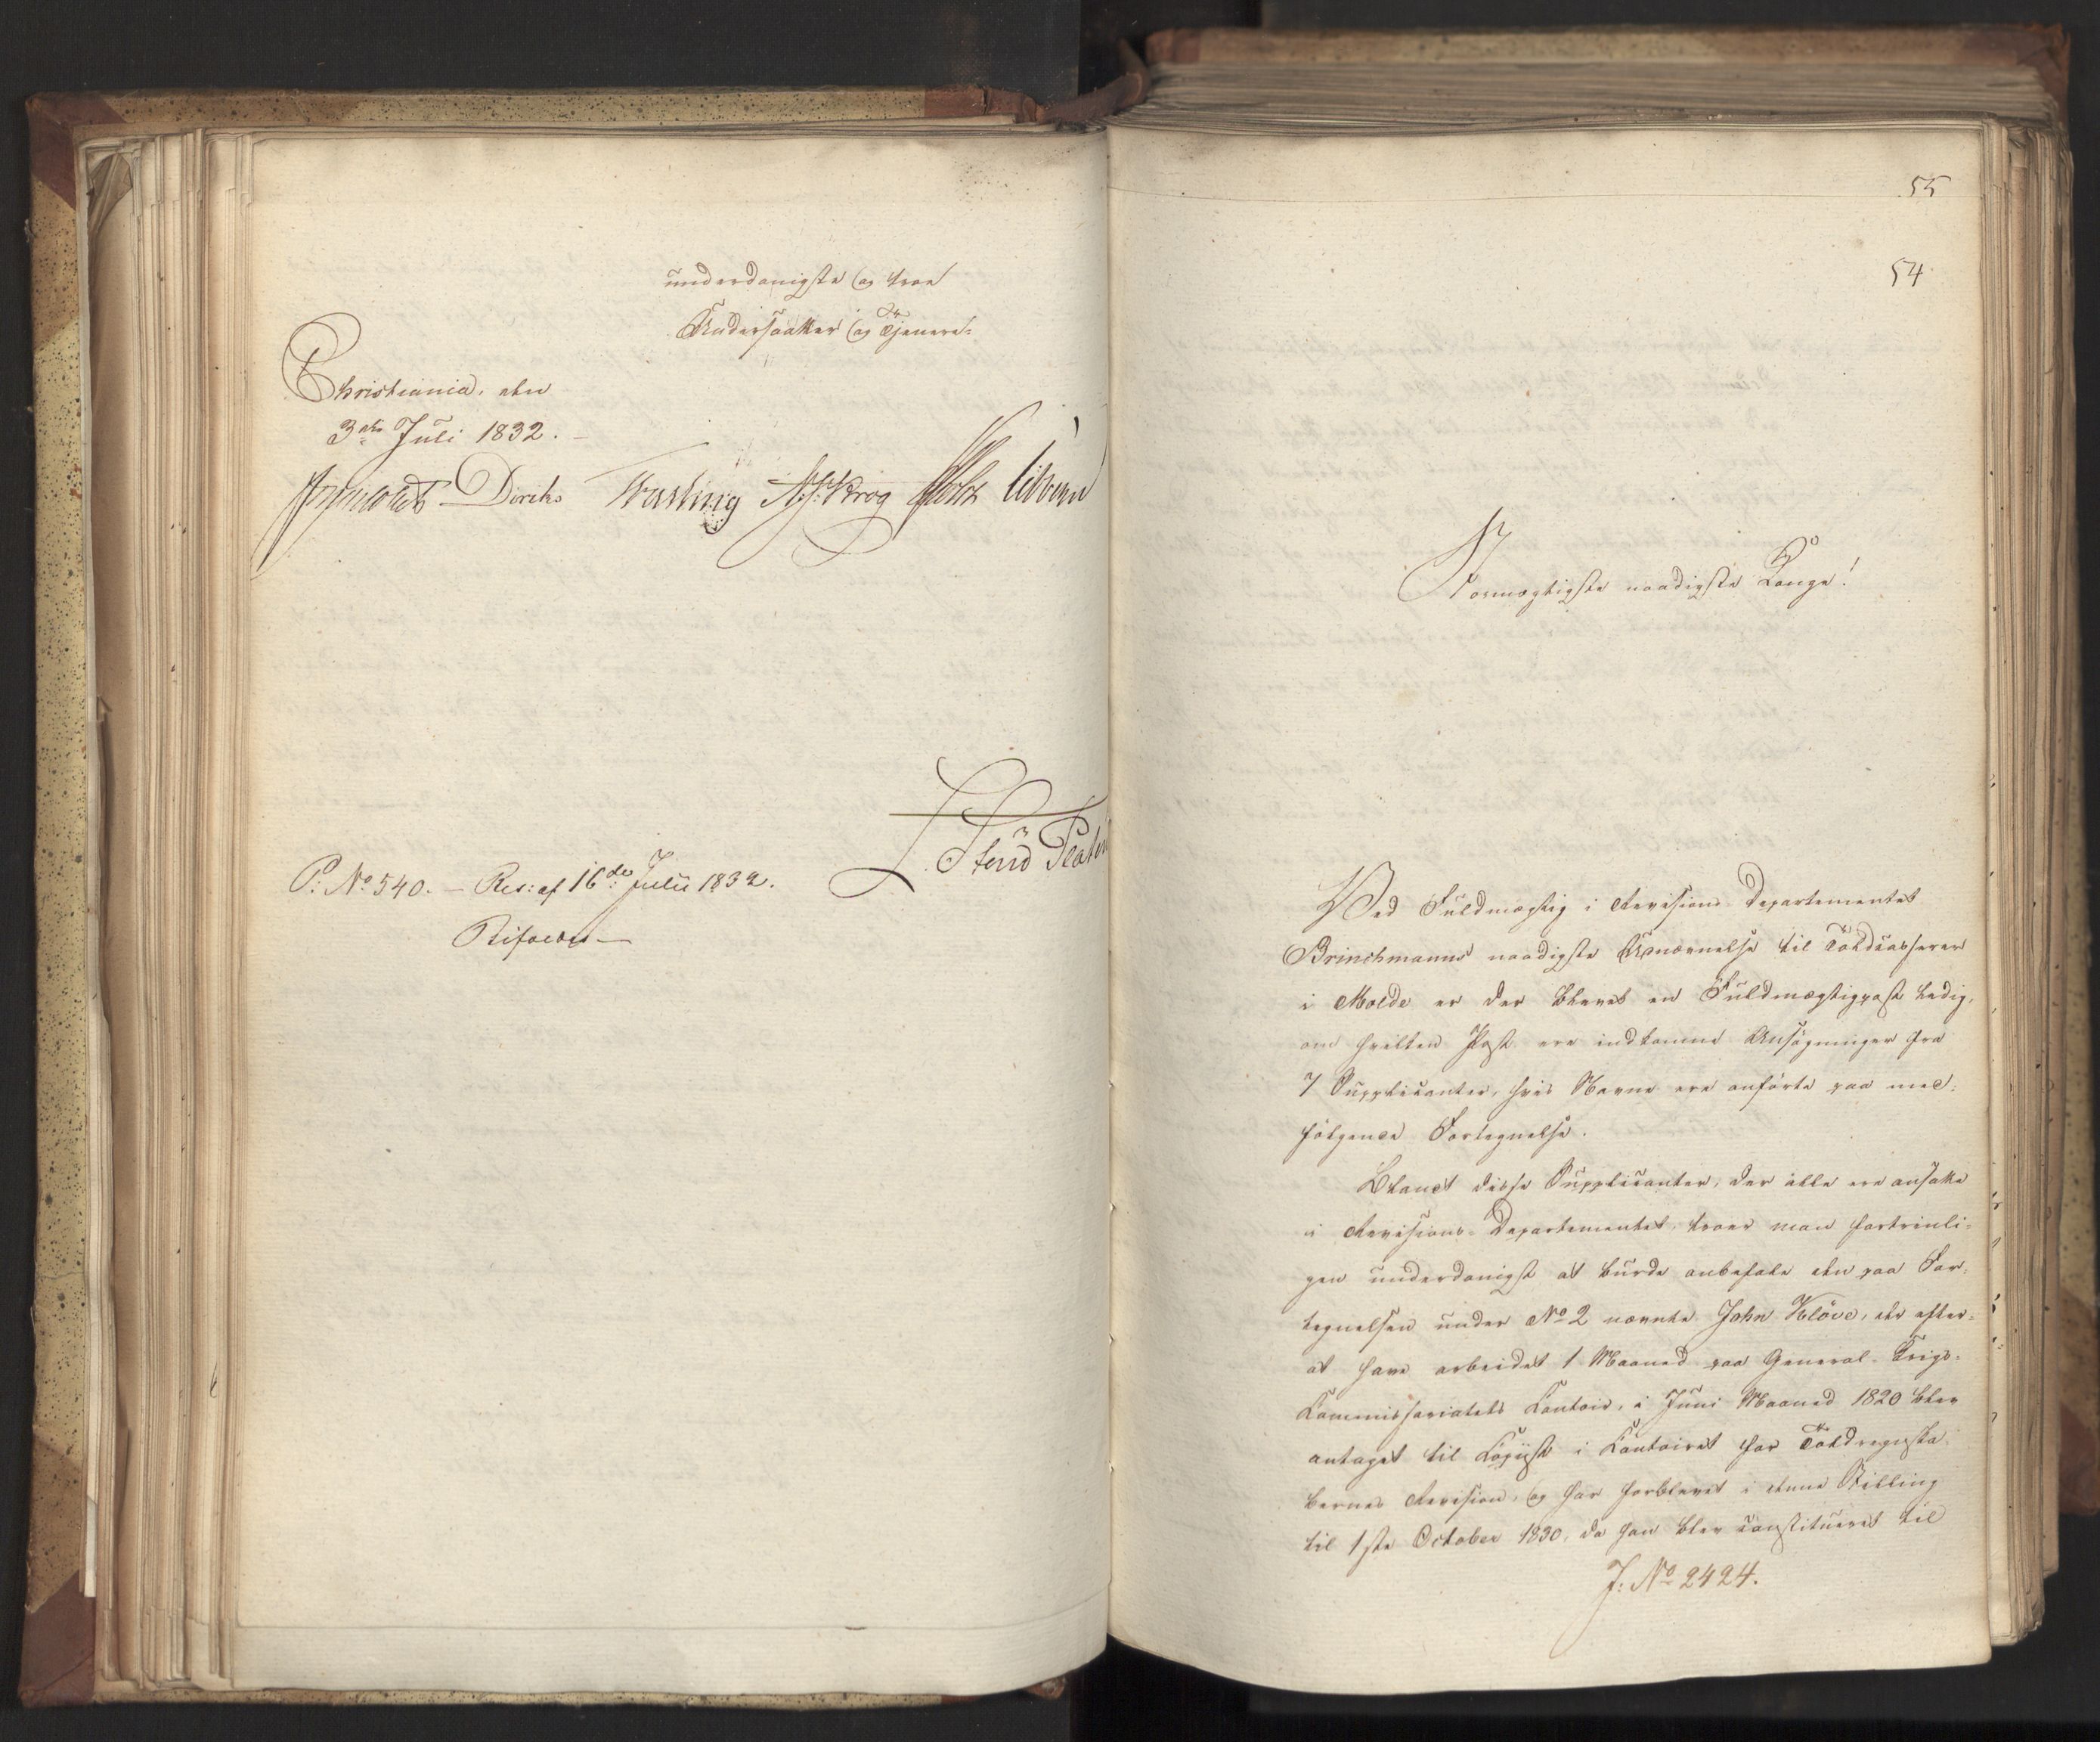 underdanigste og troe
Undersaatter og Tjenere.
Christiania, den
3die Juli 1832.
Diriks Vasling Krog Holst
P: No 540. – Res: af 16de Julii 1832.
Bifaldes –
55
54
Stormægtigste naadigste Konge!
Ved Fuldmægtig i Revisions-Departementet
Brinchmanns naadigste Udnævnelse til Toldcasserer
i Molde er der blevet en Fuldmægtigpost ledig,
om hvilken Post ere indkomne Ansøgninger fra
7 Supplicanter, hvis Navne ere anførte paa med-
følgende Fortegnelse.
Blandt disse Supplicanter, der alle ere ansatte
i Revisions-Departementet, troer man fortrinli-
gen underdanigst at burde anbefale den paa For-
tegnelsen under No 2 nævnte John Kløve, der efter
at have arbeidet 1 Maaned paa General-Krigs-
Kommissariatets Kontoir, i Juni Maaned 1820 blev
antaget til Copiist i Kontoiret for Toldregnska-
bernes Revision, og har forblevet i denne Stilling
til 1ste October 1830, da han blev constitueret til
J: No 2424.